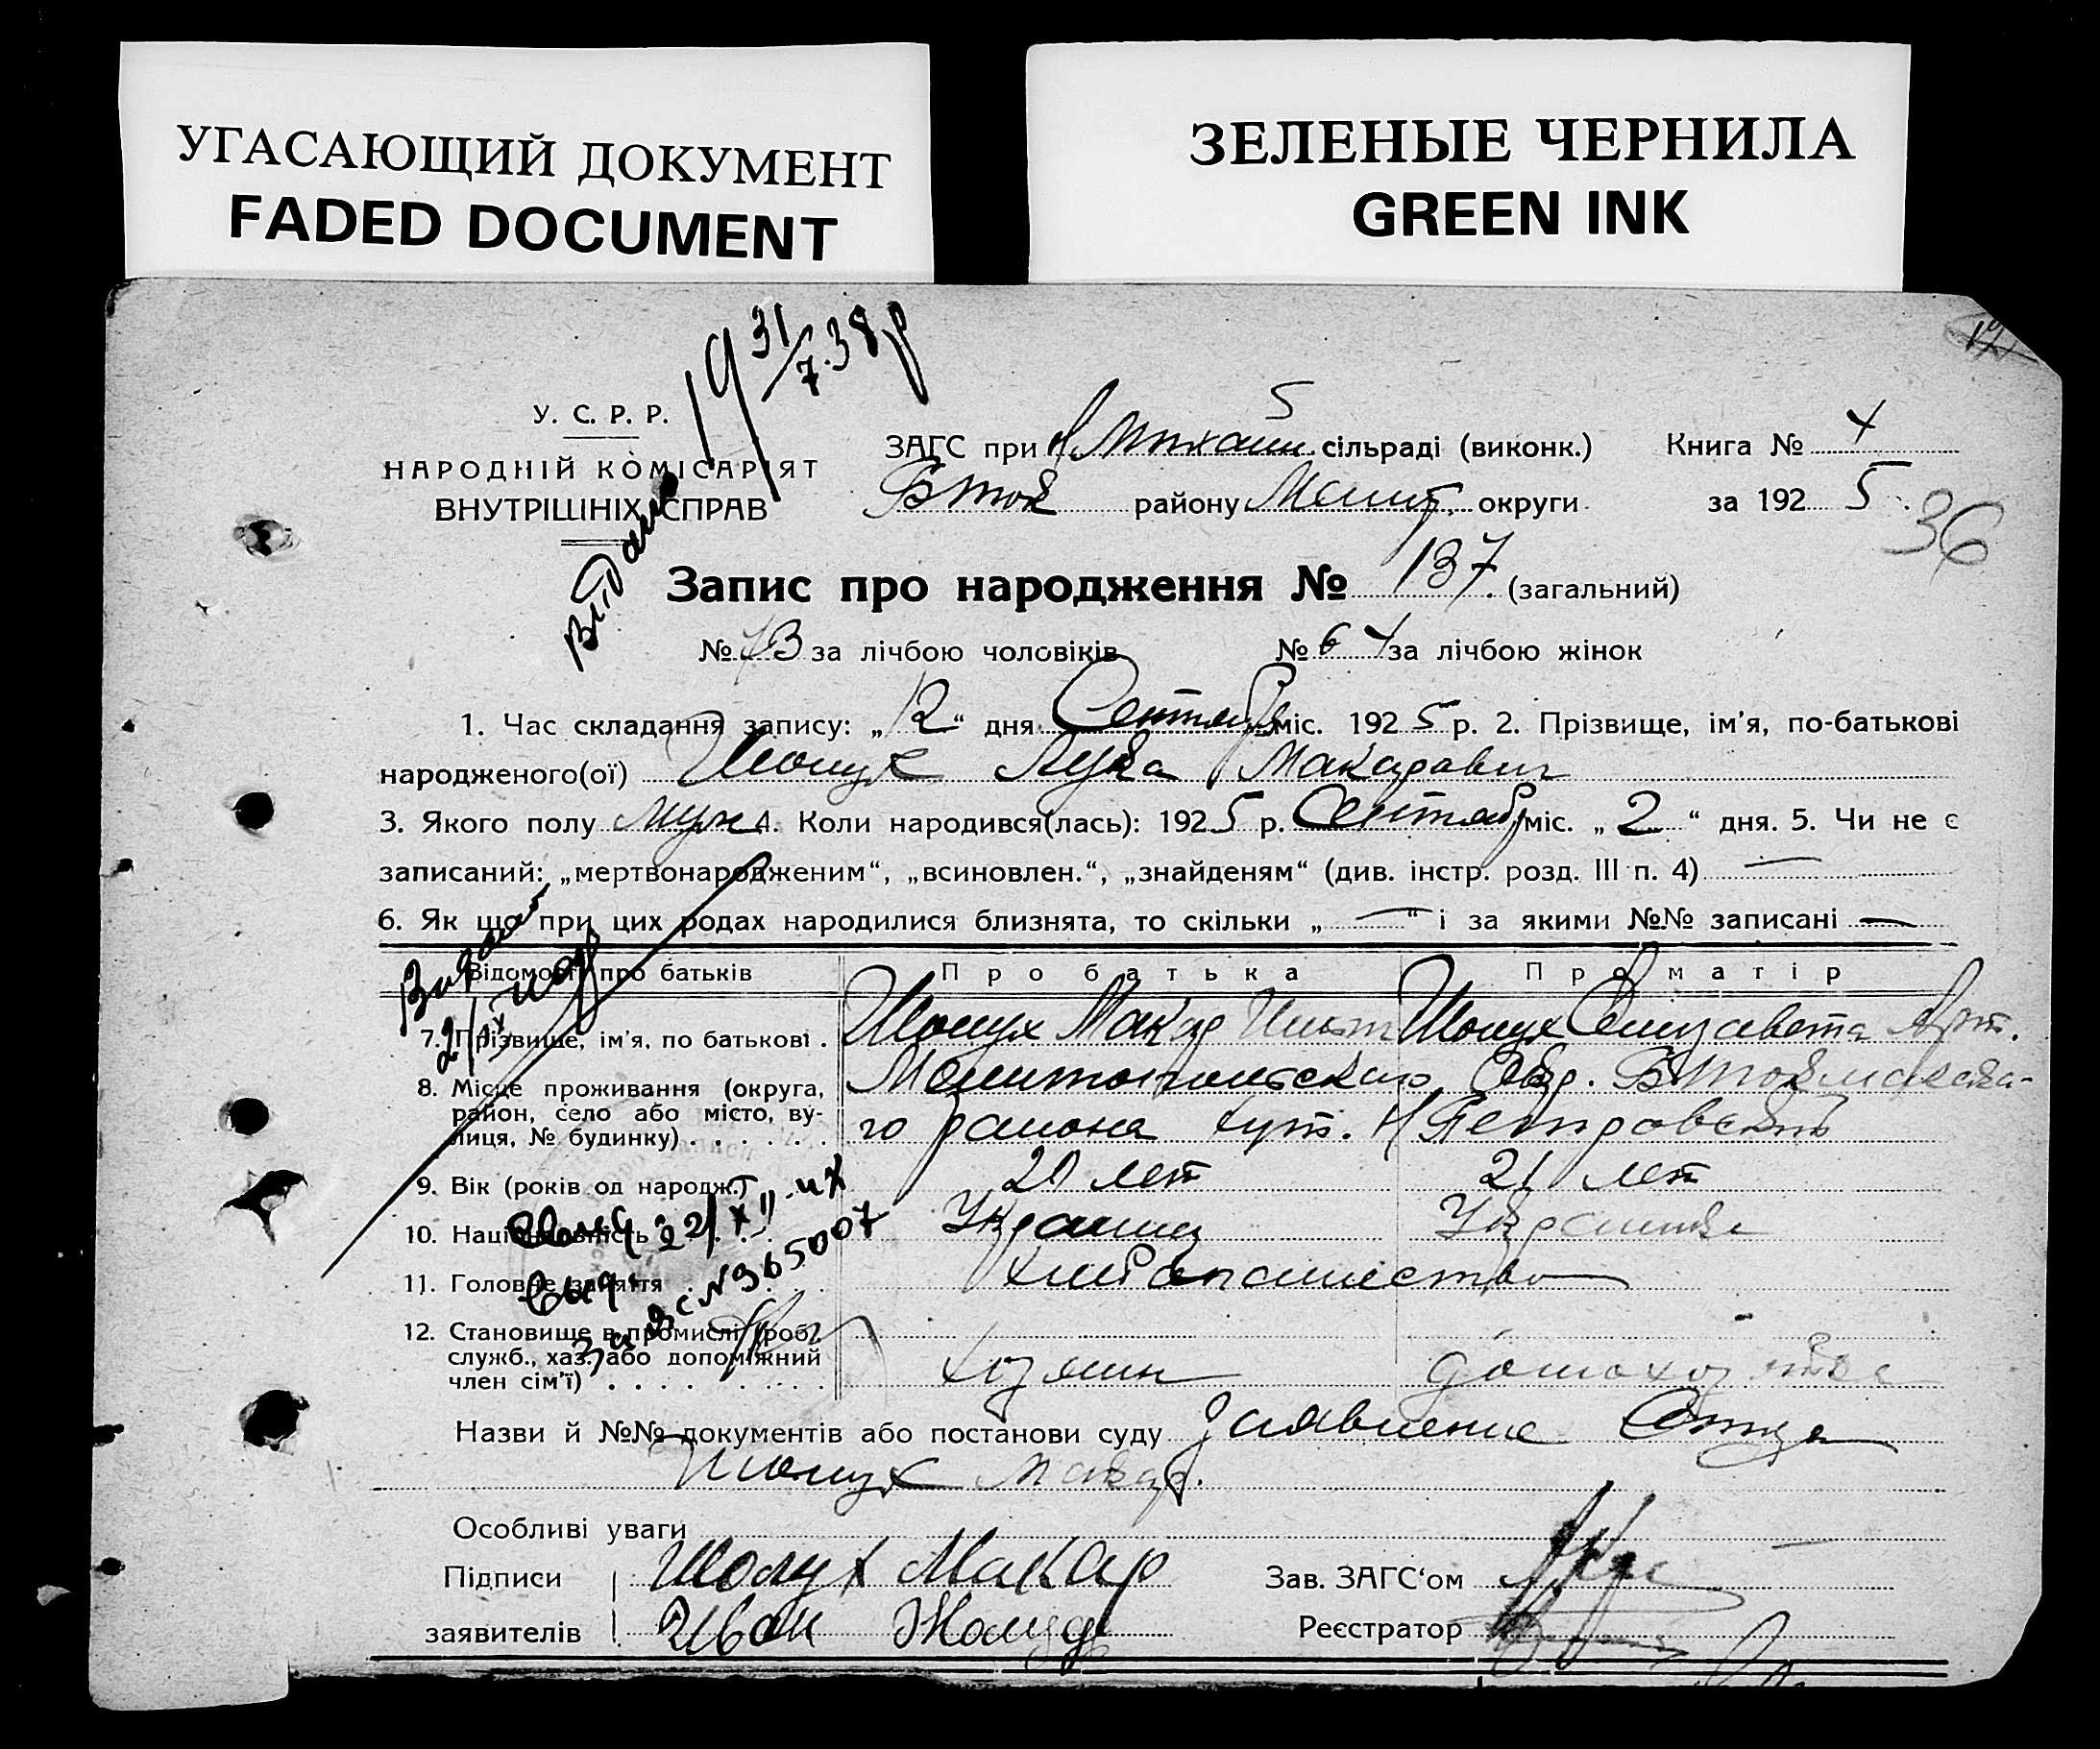 УГАСАЮЩИЙ ДОКУМЕНТ
FADED DOCUMENT
ЗЕЛЕНЫЕ ЧЕРНИЛА
GREEN INK
19 31/7.38р
У. С. Р. Р.
НАРОДНІЙ КОМІСАРІЯТ
ВНУТРІШНІХ СПРАВ
5
ЗАГС при сільраді (виконк.) Книга № 4
Б Ток району Мелит. округи за 192 5
36
Запис про народження № 137. (загальний)
№ 73 за лічбою чоловіків № 64 за лічбою жінок
1. Час складання запису: „12“ дня Сентябр міс. 192 5 р. 2. Прізвище, ім'я, по-батькові
народженого(ої) Шолух Лука Макарович
3. Якого полу муж 4. Коли народився(лась): 192 5 р. Сентябр міс. „2“ дня. 5. Чи не є
записаний: „мертвонародженим“, „всиновлен.“, „знайденям“ (див. інстр. розд. III п. 4) —
6. Як що при цих родах народилися близнята, то скільки „—“ і за якими №№ записані —
Відомості про батьків Про батька Про матір
7. Прізвище, ім'я, по батькові . Шолух Макар Шолух Елизавета Арт.
8. Місце проживання (округа, Мелитопольского Окр. Б Токмакска-
район, село або місто, ву-
лиця, № будинку) . . . . . . го района хут. Н Петровскій
9. Вік (років од народж.) 20 лет 21 лет
10. Національність Украинец Украинка
11. Головне заняття хлебопашество
12. Становище в промислі (роб.,
служб., хаз. або допоміжний
член сім'ї) . . . . хозяин домохозяйка
Назви й №№ документів або постанови суду Заявление Отца
Шолух Макар.
Особливі уваги
Підписи Шолух Макар Зав. ЗАГС'ом
заявителів Иван Реєстратор
Видано